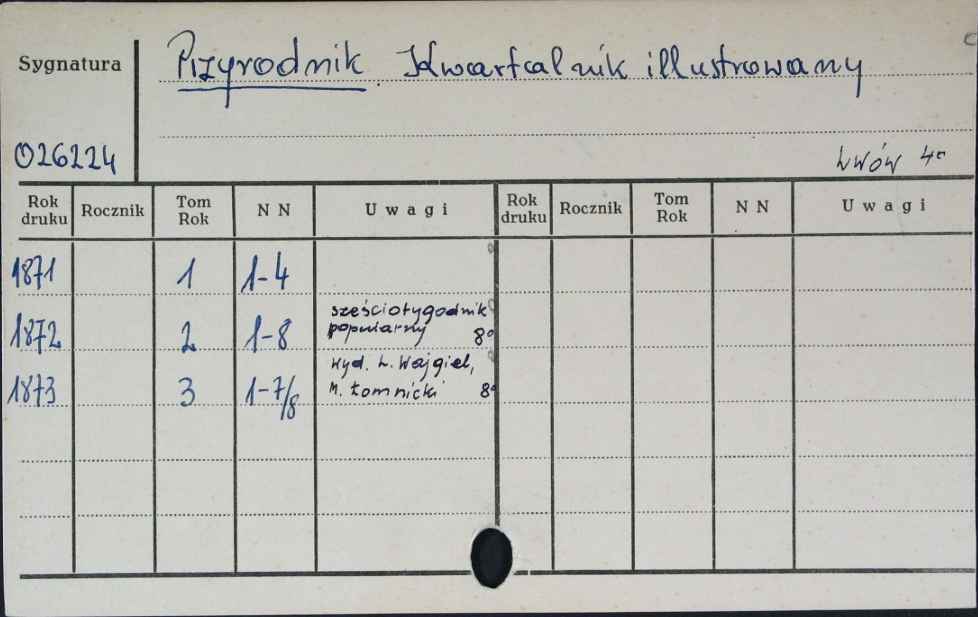 Sygnatura
Przyrodnik. Kwartalnik illustrowany
026224
Lwów 4°
Rok druku Rocznik Tom Rok N N Uwagi Rok druku Rocznik Tom Rok N N Uwagi
1871 1 1-4
sześciotygodnik
1872 2 1-8 popularny 8°
wyd. L. Wajgiel,
1873 3 1-7/8 M. Łomnicki 8°